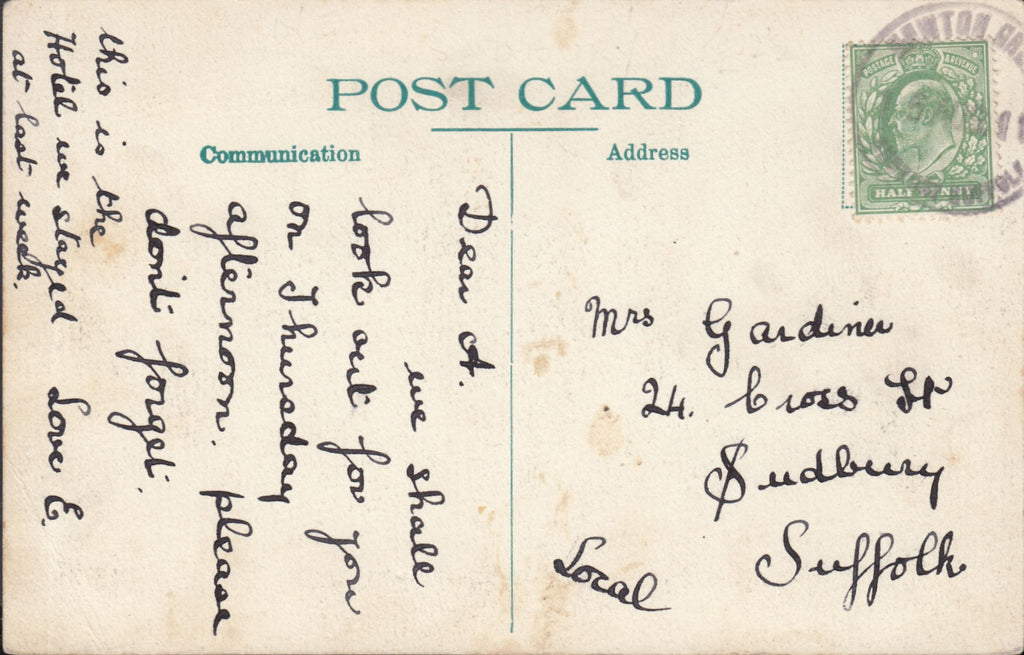 POST CARD
Communication
Address
POSTAGE & REVENUE
HALF PENNY
Dear A.
we shall
look out for you
on Thursday
afternoon. please
don't forget.
this is the
Hotel we stayed
at last week.
Love E.
Mrs Gardiner
24. Cross St
Sudbury
Suffolk
Local